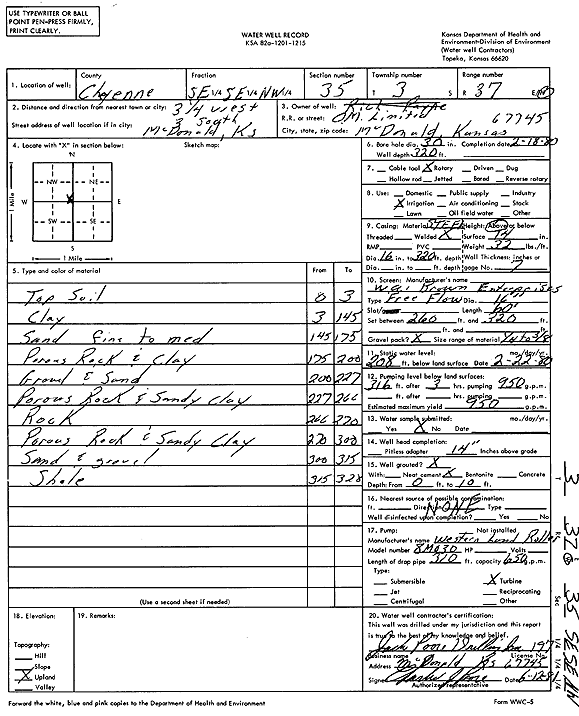 USE TYPEWRITER OR BALL
POINT PEN-PRESS FIRMLY,
PRINT CLEARLY.
WATER WELL RECORD
KSA 82a-1201-1215
Kansas Department of Health and
Environment-Division of Environment
(Water well Contractors)
Topeka, Kansas 66620
1. Location of well: County Cheyenne Fraction SE 1/4 SE 1/4 NW 1/4 Section number 35 Township number T 3 S Range number R 37 E/W
2. Distance and direction from nearest town or city: 3/4 West
3 South
Street address of well location if in city: McDonald, Ks
3. Owner of well:
R.R. or street: O.M. Limited 67745
City, state, zip code: McDonald, Kansas
4. Locate with "X" in section below: Sketch map:
N
NW NE
W X E
SW SE
S
1 Mile
1 Mile
5. Type and color of material From To
Top Soil 0 3
Clay 3 145
Sand fine to med 145 175
Porous Rock & Clay 175 200
Gravel & Sand 200 227
Porous Rock & Sandy Clay 227 266
Rock 266 270
Porous Rock & Sandy Clay 270 300
Sand & gravel 300 315
Shale 315 328
(Use a second sheet if needed)
6. Bore hole dia. 30 in. Completion date 2-18-80
Well depth 320 ft.
7. Cable tool X Rotary Driven Dug
Hollow rod Jetted Bored Reverse rotary
8. Use: Domestic Public supply Industry
X Irrigation Air conditioning Stock
Lawn Oil field water Other
9. Casing: Material STEEL Height: Above or below
Threaded Welded X Surface 14 in.
RMP PVC Weight 32 lbs./ft.
Dia. 16 in. to 320 ft. depth Wall Thickness: inches or
Dia. in. to ft. depth gage No. 7
10. Screen: Manufacturer's name
Brown Enterprises
Type Free Flow Dia. 16"
Slot/ Length 60'
Set between 260 ft. and 320 ft.
ft. and ft.
Gravel pack? X Size range of material 1/4 to 3/8
11. Static water level: mo./day/yr.
208 ft. below land surface Date 2-22-80
12. Pumping level below land surfaces:
316 ft. after 3 hrs. pumping 950 g.p.m.
ft. after hrs. pumping g.p.m.
Estimated maximum yield 950 g.p.m.
13. Water sample submitted: mo./day/yr.
Yes X No Date
14. Well head completion:
Pitless adapter 14" Inches above grade
15. Well grouted? X
With: Neat cement X Bentonite Concrete
Depth: From 0 ft. to 10 ft.
16. Nearest source of possible contamination:
ft. Direction NONE Type
Well disinfected upon completion? Yes No
17. Pump: Not installed
Manufacturer's name Western Land Roller
Model number HP Volts
Length of drop pipe 310 ft. capacity 650 g.p.m.
Type:
Submersible X Turbine
Jet Reciprocating
Centrifugal Other
18. Elevation:
Topography:
Hill
Slope
X Upland
Valley
19. Remarks:
20. Water well contractor's certification:
This well was drilled under my jurisdiction and this report
is true to the best of my knowledge and belief.
Poore Drilling Inc 197
Business name License No.
Address McDonald Ks 67745
Signed Date 6-12-81
Authorized representative
Forward the white, blue and pink copies to the Department of Health and Environment
Form WWC-5
T 3 R 37 W Sec 35 SE SE NW
1/4 1/4 1/4